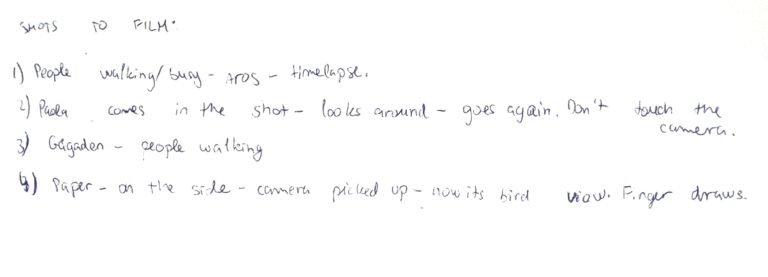 SHOTS TO FILM:
1) People walking/busy - AROS - timelapse.
2) Paola comes in the shot - looks around - goes again. Don't touch the
camera.
3) Gågaden - people walking
4) Paper - on the side - camera picked up - now its bird view. Finger draws.